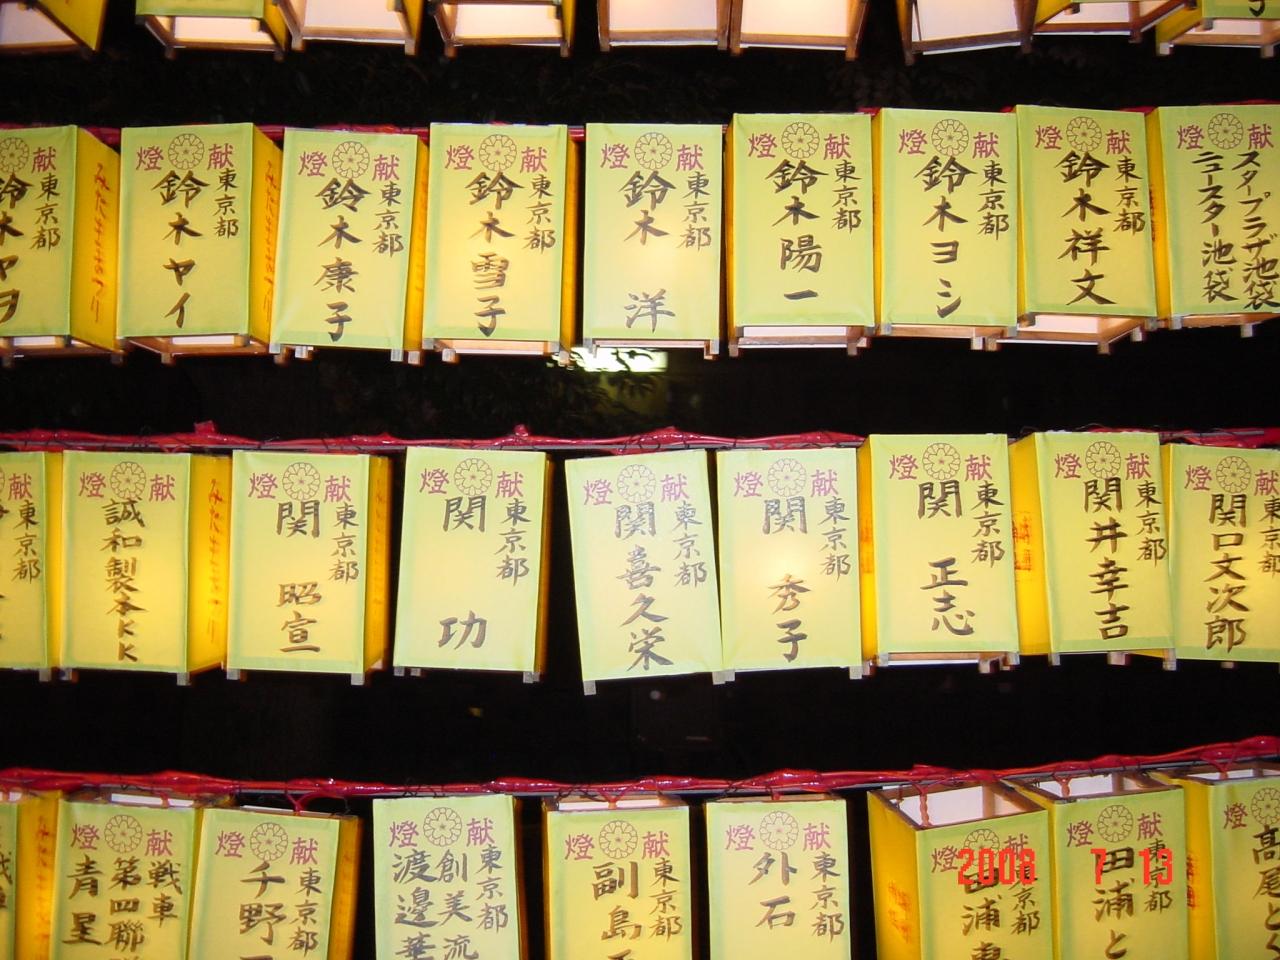 献燈
東京都
鈴木ヤヲ
献燈
東京都
鈴木ヤイ
献燈
東京都
鈴木康子
献燈
東京都
鈴木雪子
献燈
東京都
鈴木洋
献燈
東京都
鈴木陽一
献燈
東京都
鈴木ヨシ
献燈
東京都
鈴木祥文
献燈
スタープラザ池袋
ニュースター池袋
みたままつり
東京都
献燈
誠和製本KK
みたままつり
献燈
東京都
関昭宣
献燈
東京都
関功
献燈
東京都
関喜久栄
献燈
東京都
関秀子
献燈
東京都
関正志
献燈
東京都
関井幸吉
献燈
関口文次郎
献燈
戦車
第四聯
青星
献燈
東京都
千野
献燈
東京都
創美流
渡邊華
献燈
東京都
副島
献燈
東京都
外石
献燈
東京都
田浦
献燈
東京都
田浦と
献燈
髙尾とく
2008 7 13